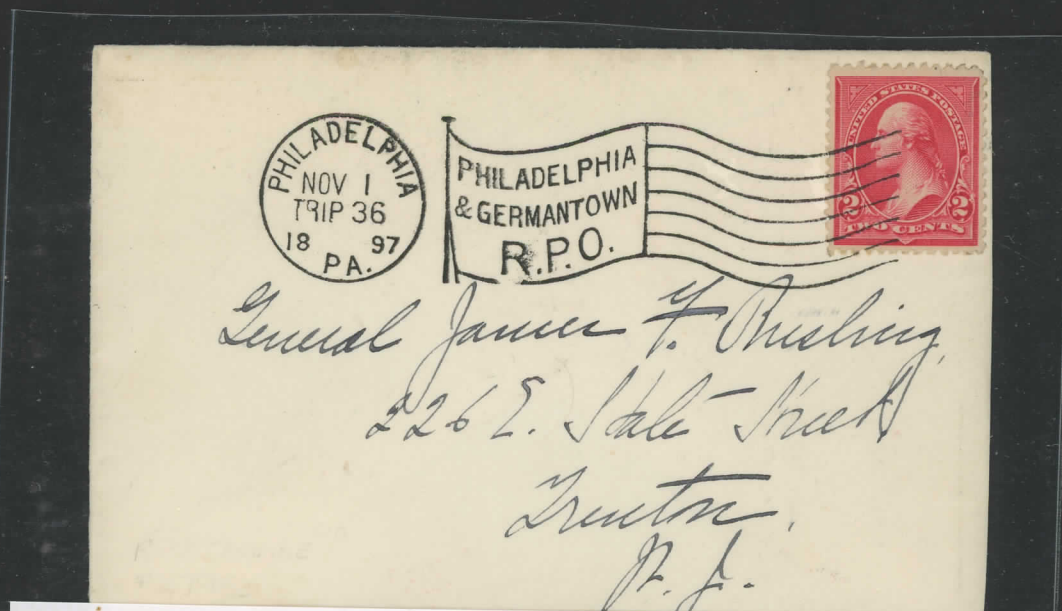 PHILADELPHIA
NOV 1
TRIP 36
18 97
PA.
PHILADELPHIA
& GERMANTOWN
R.P.O.
UNITED STATES POSTAGE
2 2
TWO CENTS
General James F. Rusling,
226 E. State Street,
Trenton,
N. J.